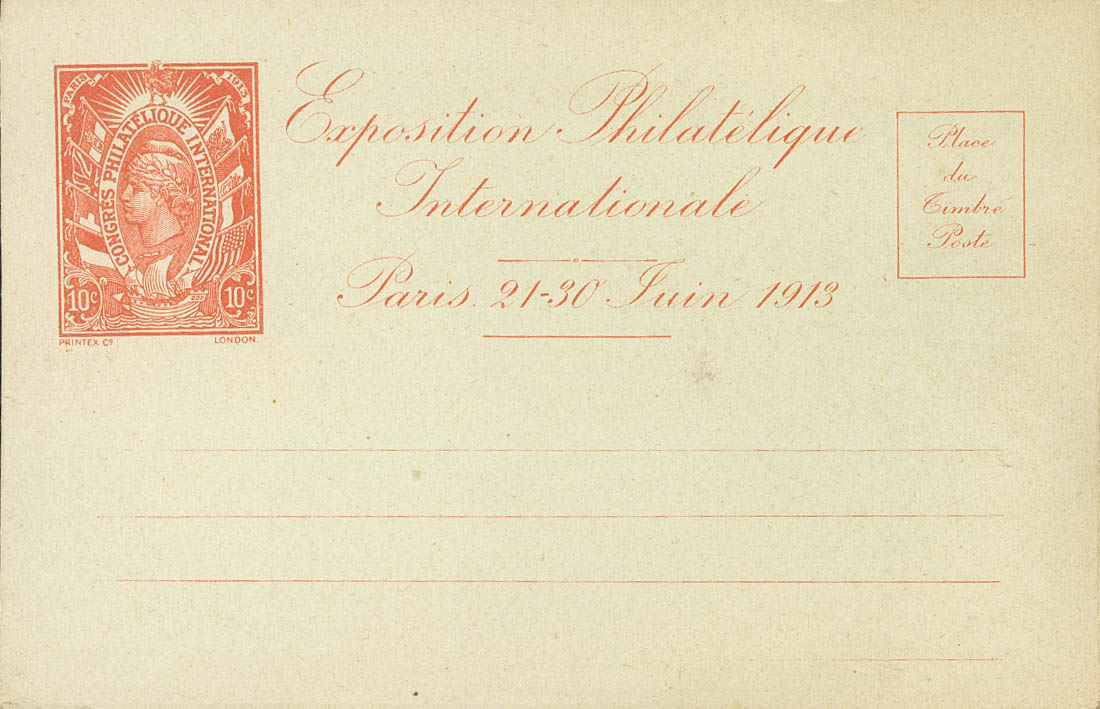 PARIS 1913
CONGRÈS PHILATÉLIQUE INTERNATIONAL
10c 10c
PRINTEX Co LONDON.
Exposition Philatélique
Internationale
Paris. 21-30 Juin 1913
Place
du
Timbre
Poste